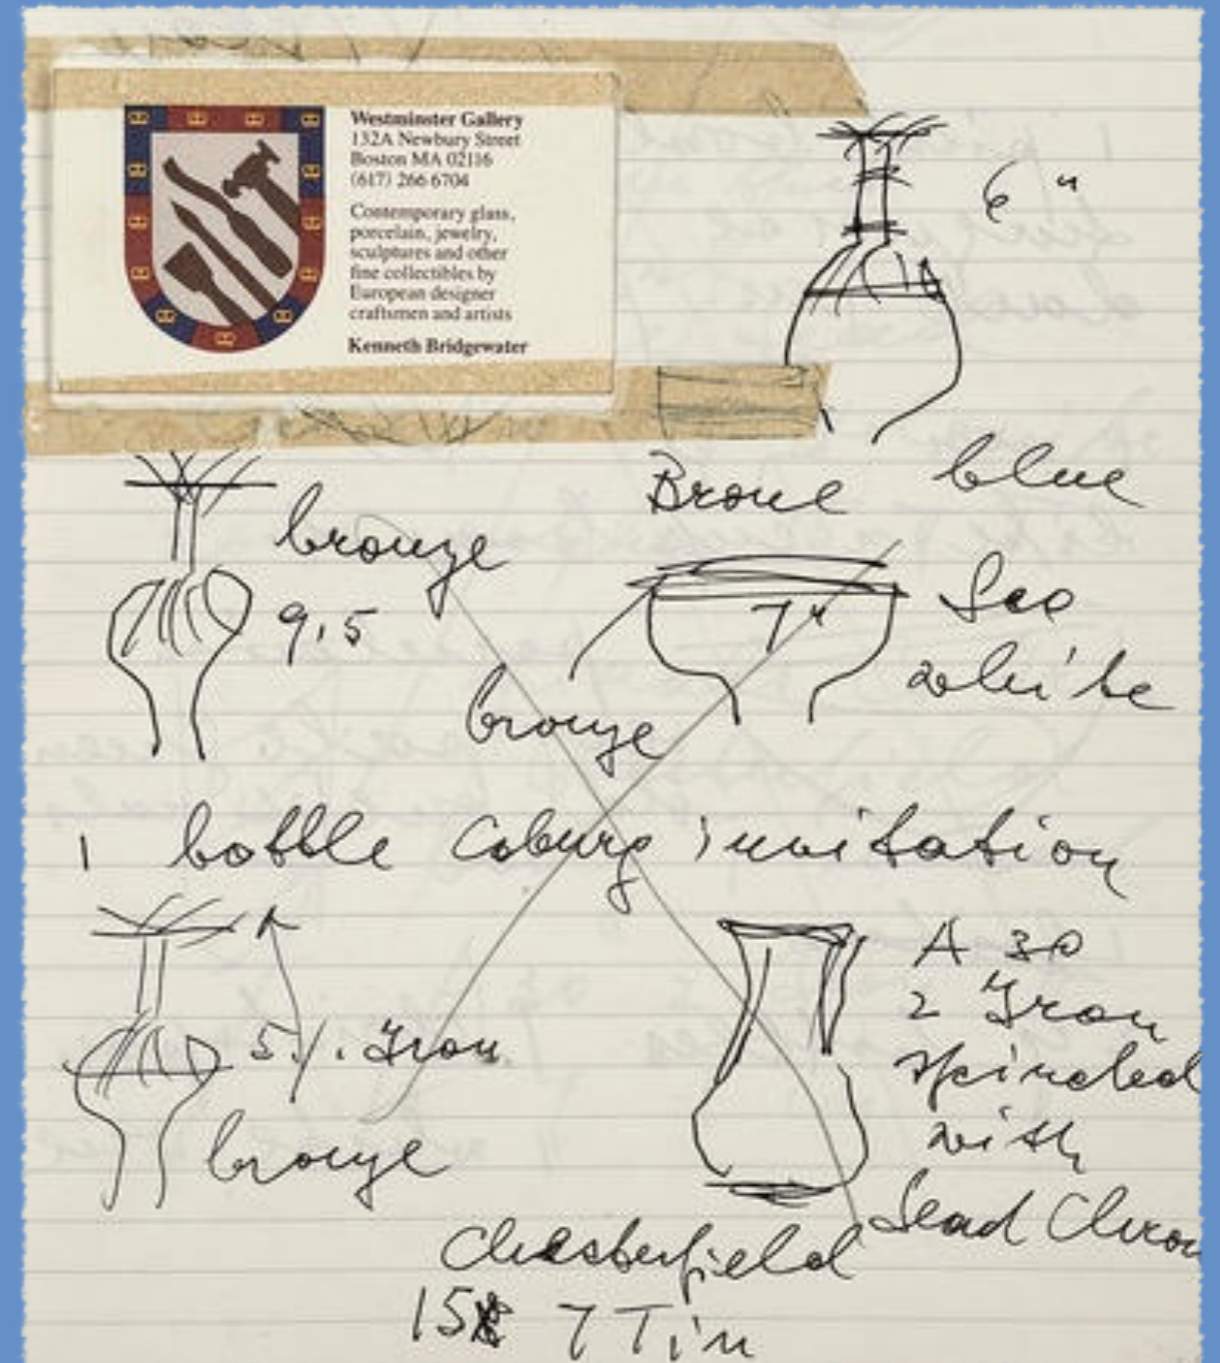 Westminster Gallery
132A Newbury Street
Boston MA 02116
(617) 266 6704
Contemporary glass,
porcelain, jewelry,
sculptures and other
fine collectibles by
European designer
craftsmen and artists
Kenneth Bridgewater
6"
blue
bronze
9,5
7"
bronze
white
1 bottle Coburg invitation
5%. Iron
bronze
A 30
2 Iron
with
Lead Chrom
Chesterfield
15 7 Tin